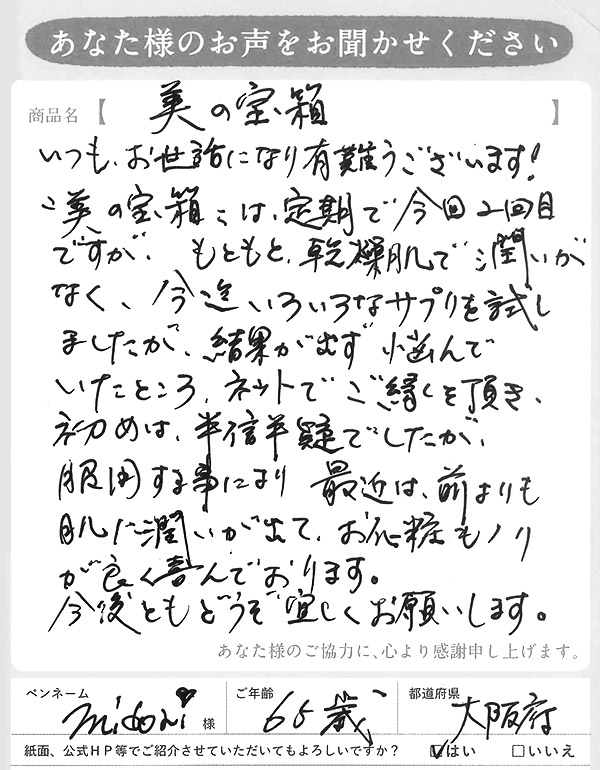 あなた様のお声をお聞かせください
商品名【 美の宝箱 】
いつも、お世話になり有難うございます!
美の宝箱は、定期で今回2回目
ですが、もともと、乾燥肌で潤いが
なく、今迄いろいろなサプリを試し
ましたが、結果が出ず悩んで
いたところ、ネットでご縁を頂き、
初めは、半信半疑でしたが、
服用する事により 最近は、前よりも
肌に潤いが出て、お化粧もノリ
が良く喜んでおります。
今後ともどうぞ宜しくお願いします。
あなた様のご協力に、心より感謝申し上げます。
ペンネーム midori♥ 様 ご年齢 65歳 都道府県 大阪府
紙面、公式HP等でご紹介させていただいてもよろしいですか? ☑はい □いいえ